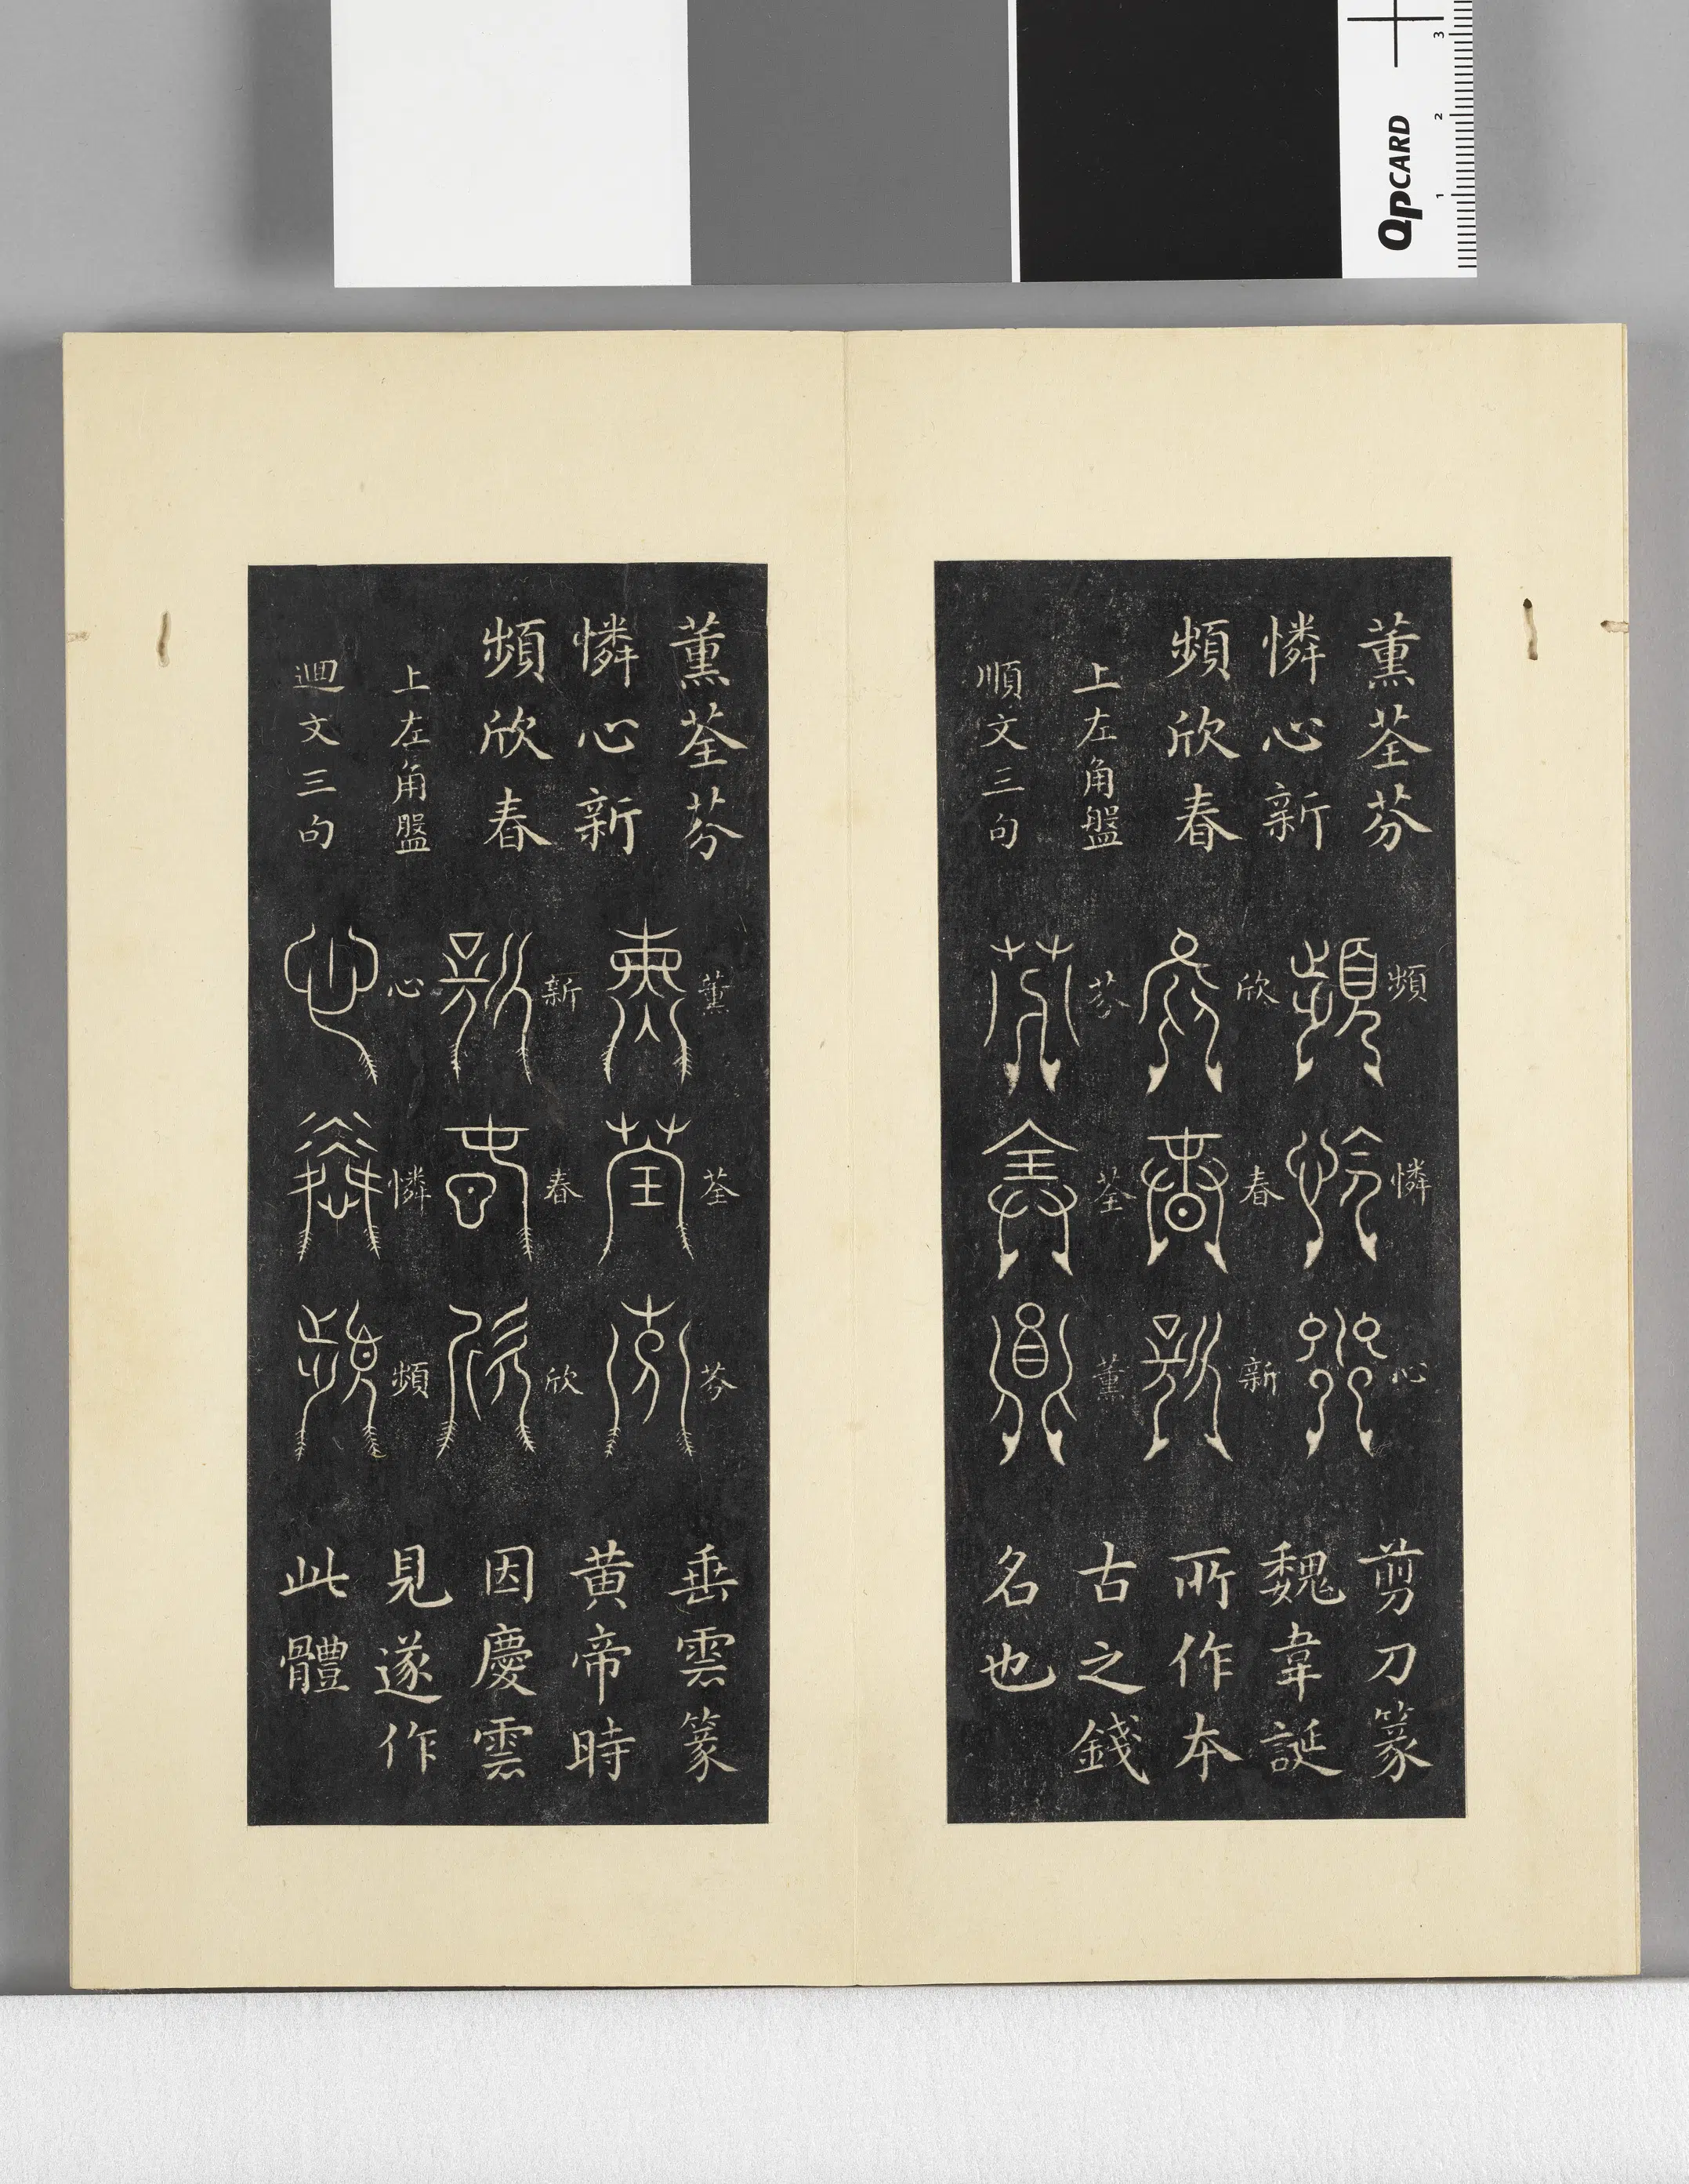 QPCARD
1
2
3
薰荃芬
憐心新
頻欣春
上左角盤
順文三句
頻
憐
心
欣
春
新
芬
荃
薰
剪刀篆
魏韋誕
所作本
古之錢
名也
薰荃芬
憐心新
頻欣春
上左角盤
迴文三句
薰
荃
芬
新
春
欣
心
憐
頻
垂雲篆
黄帝時
因慶雲
見遂作
此體